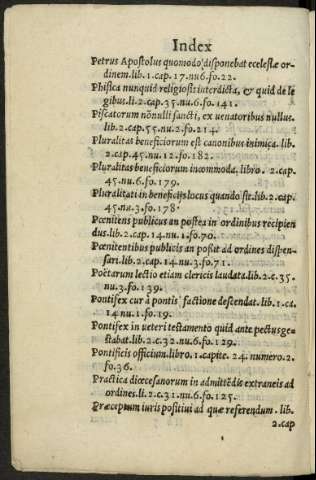 Index
Petrus Apostolus quomodo disponebat ecclesiæ or-
dinem.lib.1.cap.17.nu.6.fo.22.
Phisica nunquid religiosis interdicta, & quid de le
gibus.li.2.cap.35.nu.6.fo.141.
Piscatorum nōnulli sancti, ex uenatoribus nullus.
lib.2.cap.55.nu.2.fo.214.
Pluralitas beneficiorum est canonibus inimica. lib.
2.cap.45.nu.12.fo.182.
Pluralitas beneficiorum incommoda. libro. 2.cap.
45.nu.6.fo.179.
Pluralitati in beneficijs locus quando sit.lib.2.cap.
45.nu.3.fo.178.
Pœnitens publicus an postea in ordinibus recipien
dus.lib.2.cap.14.nu.1.fo.70.
Pœnitentibus publicis an possit ad ordines dispen-
sari.lib.2.cap.14.nu.3.fo.71.
Poëtarum lectio etiam clericis laudata.lib.2.c.35.
nu.3.fo.139.
Pontifex cur à pontis factione descendat.lib.1.ca.
14.nu.1.fo.19.
Pontifex in ueteri testamento quid ante pectus ge-
stabat.lib.2.c.32.nu.6.fo.129.
Pontificis officium.libro.1.capite.24.numero.2.
fo.36.
Practica diœcesanorum in admittēdis extraneis ad
ordines.li.2.c.31.nu.6.fo.125.
Præceptum iuris positiui ad quæ referendum. lib.
2.cap